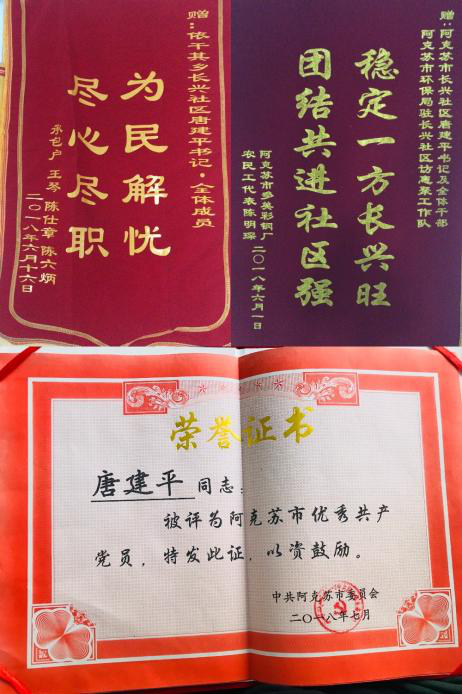 赠：依干其乡长兴社区唐建平书记·全体成员
为民解忧
尽心尽职
承包户 王琴 陈仕章 陈六炳
二〇一八年六月十六日
赠：阿克苏市长兴社区唐建平书记及全体干部
阿克苏市环保局驻长兴社区访惠聚工作队
稳定一方长兴旺
团结共进社区强
阿克苏市多美彩钢厂
农民工代表陈明琛 二〇一八年六月一日
荣誉证书
唐建平同志：
被评为阿克苏市优秀共产
党员，特发此证，以资鼓励。
中共阿克苏市委员会
二〇一八年七月